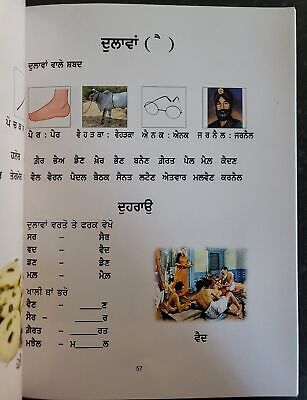 ਦੁਲਾਵਾਂ ( ੈ )
ਦੁਲਾਵਾਂ ਵਾਲੇ ਸ਼ਬਦ
ਪੈ ਰ : ਪੈਰ ਵੈ ਹ ੜ ਕਾ : ਵੈਹੜਕਾ ਐ ਨ ਕ : ਐਨਕ ਜ ਰ ਨੈ ਲ : ਜਰਨੈਲ
ਗ਼ੈਰ ਭੈਅ ਡੈਣ ਮੈਰ ਭੈਣ ਬਨੈਣ ਗ਼ੈਰਤ ਪੈਲ ਮੈਲ਼ ਕੈਦਣ
ਵੈਲ ਵੈਰਨ ਪੈਦਲ ਬੈਠਕ ਸੈਨਤ ਲਟੈਣ ਐਤਵਾਰ ਮਲਵੈਣ ਕਰਨੈਲ
ਦੁਹਰਾਉ
ਦੁਲਾਵਾਂ ਵਰਤੋ ਤੇ ਫਰਕ ਵੇਖੋ
ਸਰ – ਸੈਰ
ਵਦ – ਵੈਦ
ਡਣ – ਡੈਣ
ਮਲ਼ – ਮੈਲ਼
ਖ਼ਾਲੀ ਥਾਂ ਭਰੋ
ਵੈਣ – ____ਣ
ਸੈਰ – ____ਰ
ਗ਼ੈਰਤ – ____ਰਤ
ਮਝੈਲ – ਮ____ਲ
ਵੈਦ
57